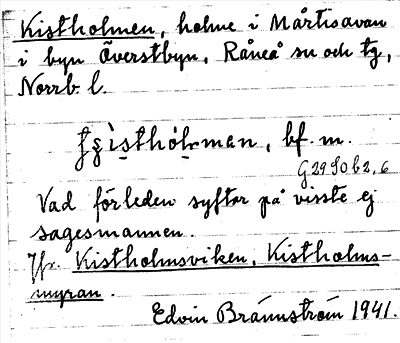 Kistholmen, holme i Mårtisavan
i byn Överstbyn, Råneå sn och tg,
Norrb. l.
bf. m.
G 29 S0 b 2, 6
Vad förleden syftar på visste ej
sagesmannen.
Jfr. Kistholmsviken, Kistholms-
myran.
Edvin Brännström 1941.